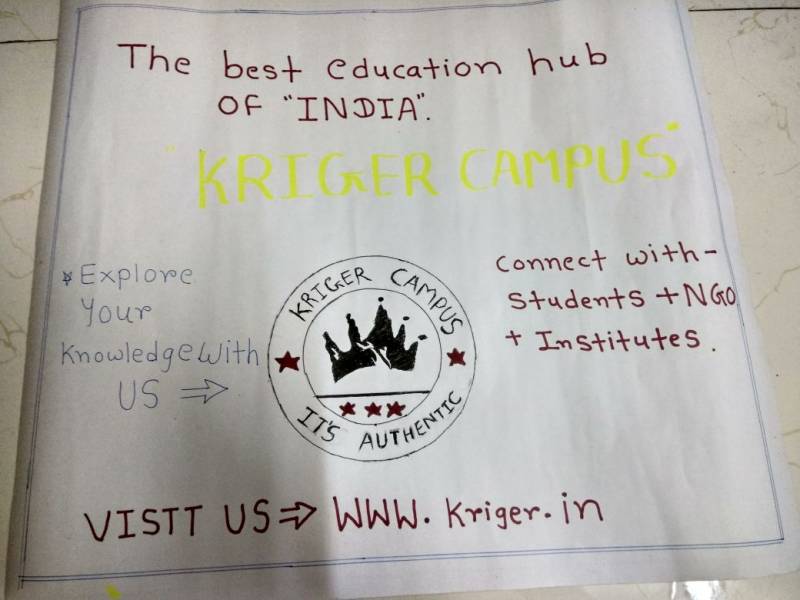 The best education hub
OF "INDIA".
"KRIGER CAMPUS"
*Explore
Your
Knowledge With
US ⇒
KRIGER CAMPUS
IT'S AUTHENTIC
Connect with-
Students + NGO
+ Institutes.
VISTT US ⇒ WWW.Kriger.in